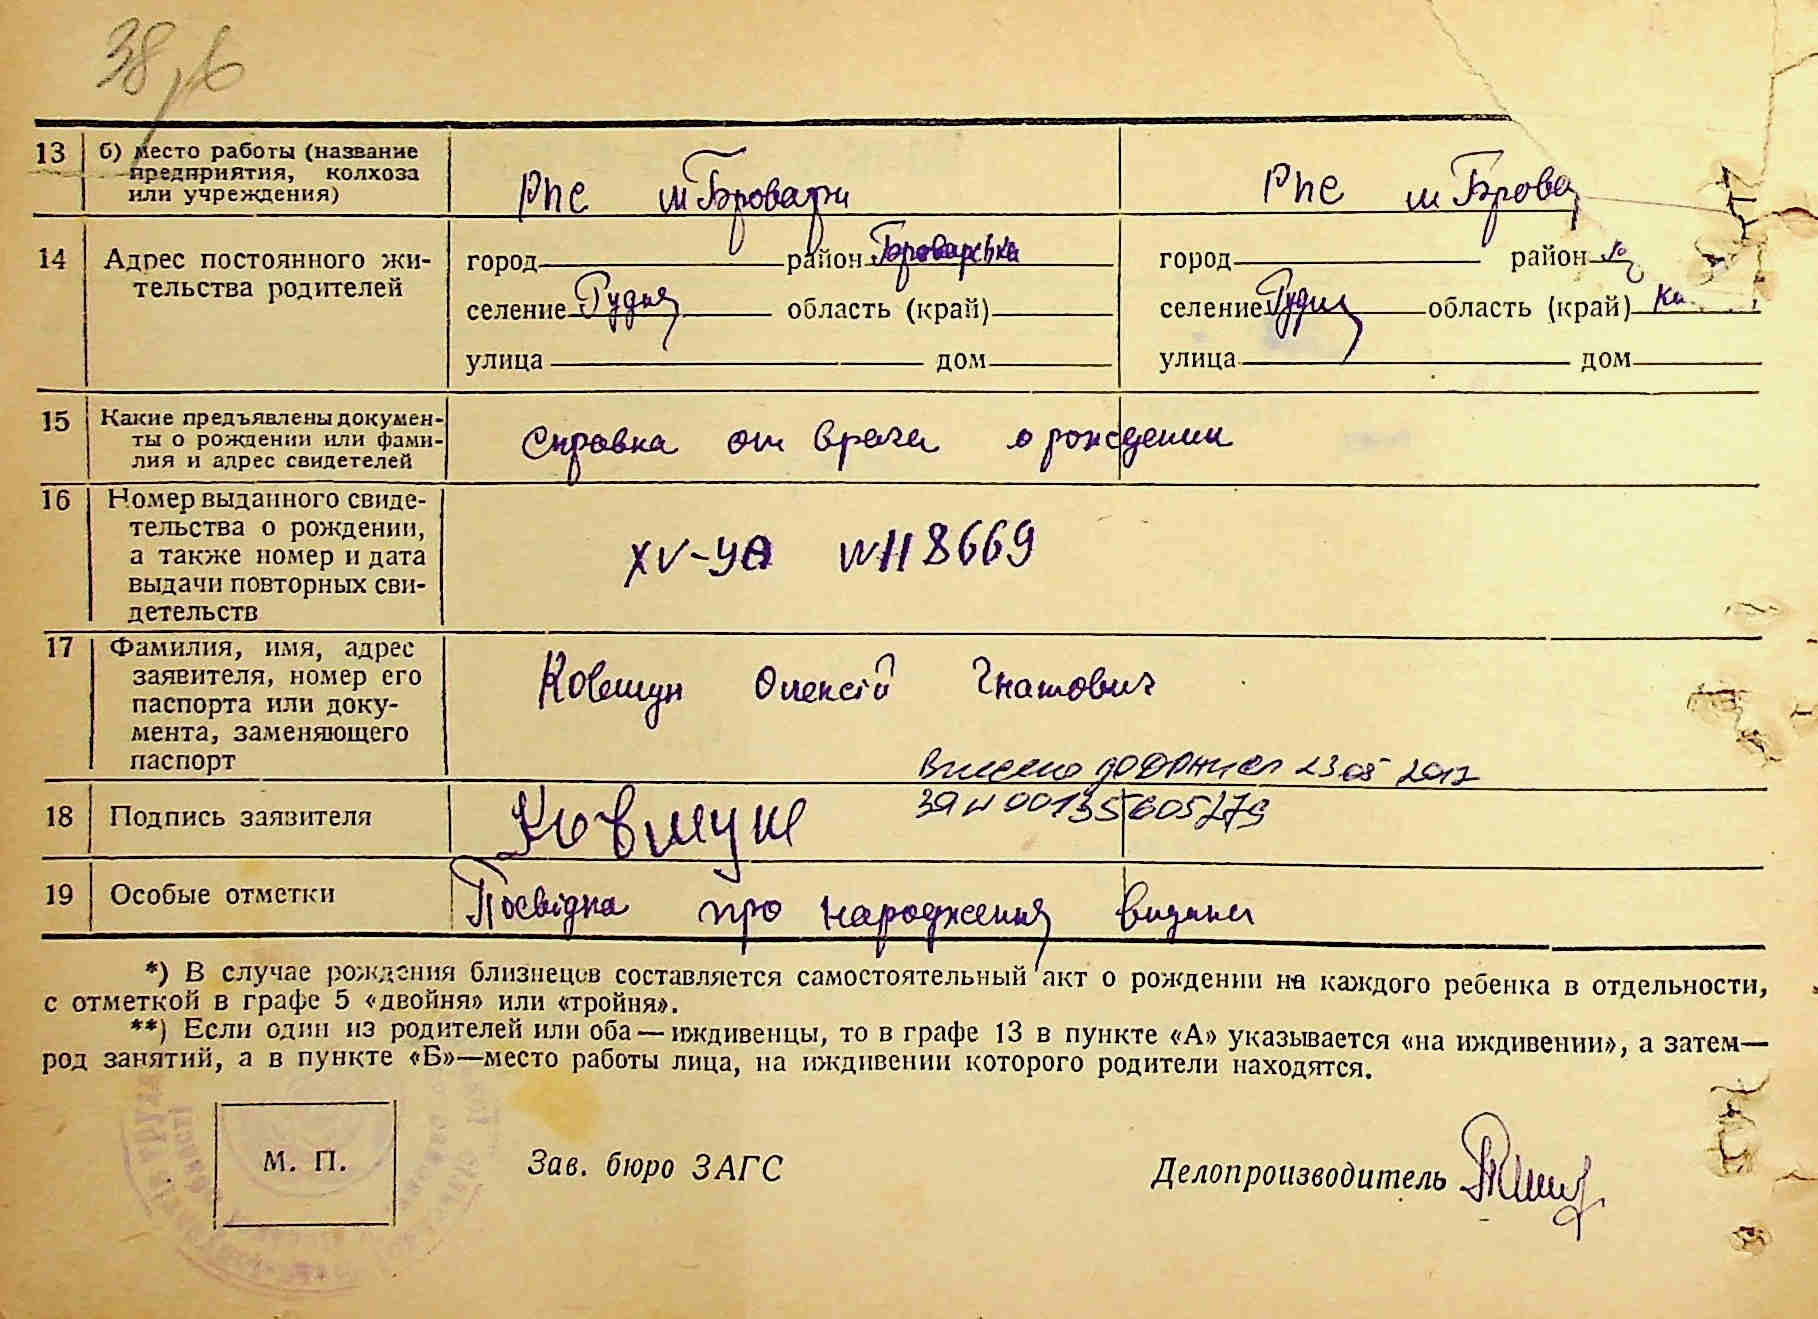 38
13 б) место работы (название
предприятия, колхоза
или учреждения)
РПС м Бровари РПС м Брова
14 Адрес постоянного жи-
тельства родителей
город район Броварська город район
селение Рудня область (край) селение Рудня область (край) Ки
улица дом улица дом
15 Какие предъявлены докумен-
ты о рождении или фами-
лия и адрес свидетелей
Справка от врача о рождении
16 Номер выданного свиде-
тельства о рождении,
а также номер и дата
выдачи повторных сви-
детельств
XV-УЯ №118669
17 Фамилия, имя, адрес
заявителя, номер его
паспорта или доку-
мента, заменяющего
паспорт
Ковтун Олексій Гнатович
Внесено до ДРАЦС 23 05 2012
ЗА N 00135605279
18 Подпись заявителя Ковтун
19 Особые отметки Посвідка про народження видана
*) В случае рождения близнецов составляется самостоятельный акт о рождении на каждого ребенка в отдельности,
с отметкой в графе 5 «двойня» или «тройня».
**) Если один из родителей или оба — иждивенцы, то в графе 13 в пункте «А» указывается «на иждивении», а затем—
род занятий, а в пункте «Б»—место работы лица, на иждивении которого родители находятся.
М. П. Зав. бюро ЗАГС Делопроизводитель